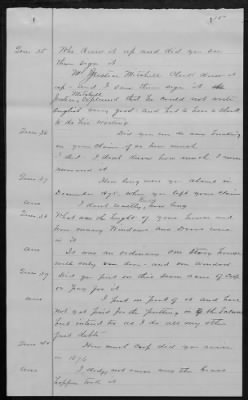 15
Ques 35 Who drew it up and did you see
them sign it
Mitchell Clerk drew it
up and I saw them sign it
Mitchell
explained that he could not write
English very good and had to have a clerk
to do his writing
Ques 36 Did you do any breaking
on your claim if so how much
I did. I dont know how much I never
measured it
Ques 37 How long were you absent in
December 1875 when you left your claim
Ans I dont really know how long
Ques 38 What was the hight of your house and
how many Windows and Doors were
in it
Ans It was an ordinary one Story house
with only one door and one window
Ques 39 Did you put in this same game of Crop
or pay for it
Ans I put in part of it and have
not yet paid for the putting in of the balance
but intend to as I do all my other
just debts
Ques 40 How much Crop did you raise
in 1876
Ans I didnt raise any the Grass
hoppers took it